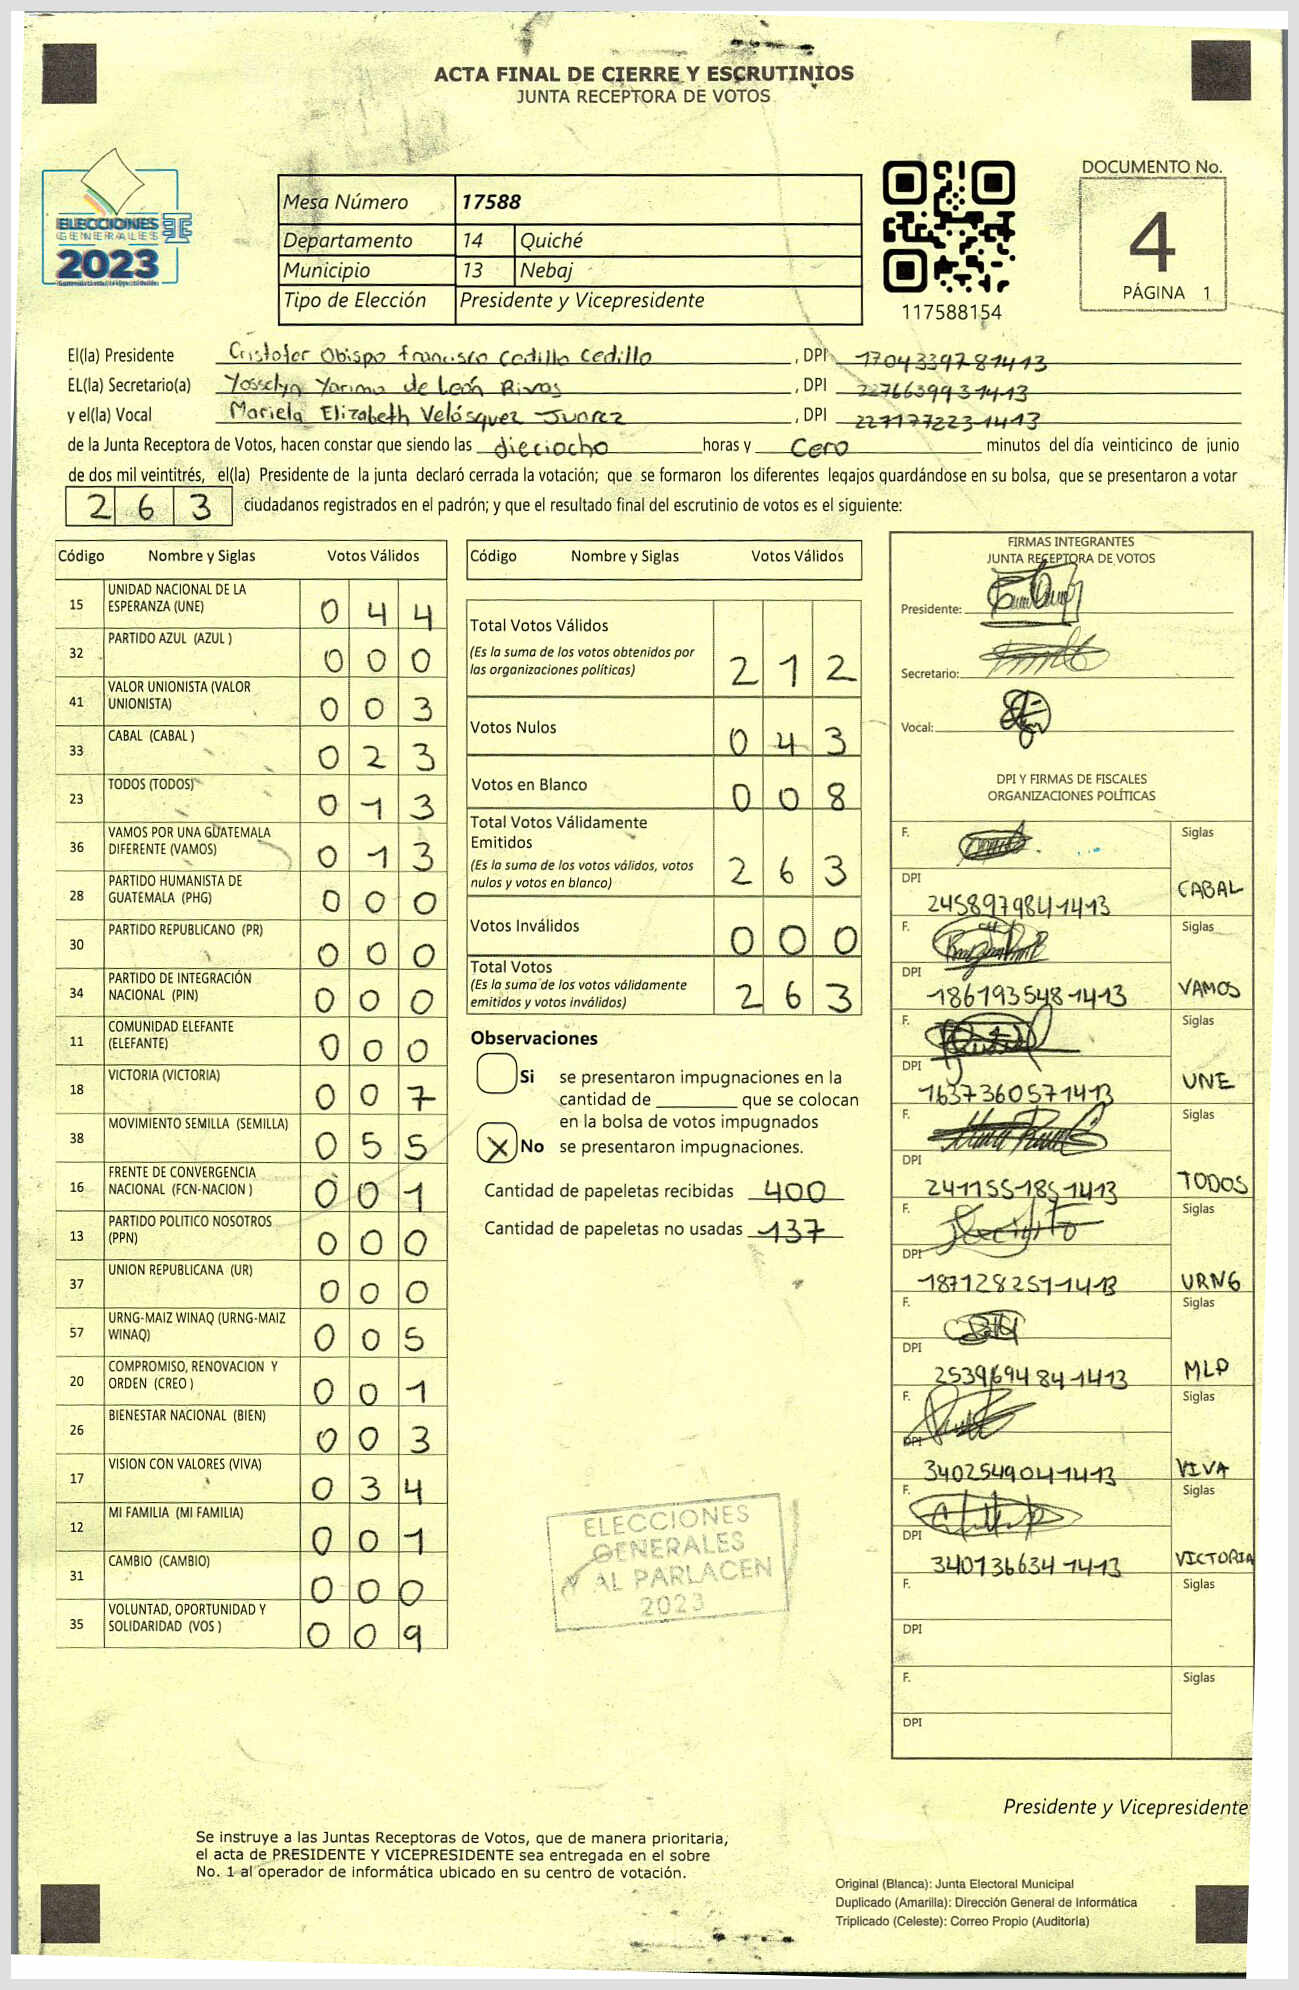 ACTA FINAL DE CIERRE Y ESCRUTINIOS
JUNTA RECEPTORA DE VOTOS
ELECCIONES
GENERALES
2023
Mesa Número 17588
Departamento 14 Quiché
Municipio 13 Nebaj
Tipo de Elección Presidente y Vicepresidente
117588154
DOCUMENTO No.
4
PÁGINA 1
El(la) Presidente Cristofer Obispo Francisco Cedillo Cedillo , DPI 1704339781413
EL(la) Secretario(a) Yosselyn Yarima de León Rivas , DPI 2276639931413
y el(la) Vocal Mariela Elizabeth Velásquez Juarez , DPI 2271772231413
de la Junta Receptora de Votos, hacen constar que siendo las dieciocho horas y Cero minutos del día veinticinco de junio
de dos mil veintitrés, el(la) Presidente de la junta declaró cerrada la votación; que se formaron los diferentes legajos guardándose en su bolsa, que se presentaron a votar
263 ciudadanos registrados en el padrón; y que el resultado final del escrutinio de votos es el siguiente:
Código Nombre y Siglas Votos Válidos
15 UNIDAD NACIONAL DE LA
ESPERANZA (UNE) 0 4 4
32 PARTIDO AZUL (AZUL ) 0 0 0
41 VALOR UNIONISTA (VALOR
UNIONISTA) 0 0 3
33 CABAL (CABAL ) 0 2 3
23 TODOS (TODOS) 0 1 3
36 VAMOS POR UNA GUATEMALA
DIFERENTE (VAMOS) 0 1 3
28 PARTIDO HUMANISTA DE
GUATEMALA (PHG) 0 0 0
30 PARTIDO REPUBLICANO (PR) 0 0 0
34 PARTIDO DE INTEGRACIÓN
NACIONAL (PIN) 0 0 0
11 COMUNIDAD ELEFANTE
(ELEFANTE) 0 0 0
18 VICTORIA (VICTORIA) 0 0 7
38 MOVIMIENTO SEMILLA (SEMILLA) 0 5 5
16 FRENTE DE CONVERGENCIA
NACIONAL (FCN-NACION ) 0 0 1
13 PARTIDO POLITICO NOSOTROS
(PPN) 0 0 0
37 UNION REPUBLICANA (UR) 0 0 0
57 URNG-MAIZ WINAQ (URNG-MAIZ
WINAQ) 0 0 5
20 COMPROMISO, RENOVACION Y
ORDEN (CREO ) 0 0 1
26 BIENESTAR NACIONAL (BIEN) 0 0 3
17 VISION CON VALORES (VIVA) 0 3 4
12 MI FAMILIA (MI FAMILIA) 0 0 1
31 CAMBIO (CAMBIO) 0 0 0
35 VOLUNTAD, OPORTUNIDAD Y
SOLIDARIDAD (VOS ) 0 0 9
Código Nombre y Siglas Votos Válidos
Total Votos Válidos
(Es la suma de los votos obtenidos por
las organizaciones políticas) 2 1 2
Votos Nulos 0 4 3
Votos en Blanco 0 0 8
Total Votos Válidamente
Emitidos
(Es la suma de los votos válidos, votos
nulos y votos en blanco) 2 6 3
Votos Inválidos 0 0 0
Total Votos
(Es la suma de los votos válidamente
emitidos y votos inválidos) 2 6 3
Observaciones
Si se presentaron impugnaciones en la
cantidad de ________ que se colocan
en la bolsa de votos impugnados
X No se presentaron impugnaciones.
Cantidad de papeletas recibidas 400
Cantidad de papeletas no usadas 137
ELECCIONES
GENERALES
Y AL PARLACEN
2023
FIRMAS INTEGRANTES
JUNTA RECEPTORA DE VOTOS
Presidente:
Secretario:
Vocal:
DPI Y FIRMAS DE FISCALES
ORGANIZACIONES POLÍTICAS
F. Siglas
DPI 2458979841413 CABAL
F. Siglas
DPI 1861935481413 VAMOS
F. Siglas
DPI 1637360571413 UNE
F. Siglas
DPI 2411551851413 TODOS
F. Siglas
DPI 1871282511413 URNG
F. Siglas
DPI 2539694841413 MLP
F. Siglas
DPI 3402549041413 VIVA
F. Siglas
DPI 3401366341413 VICTORIA
F. Siglas
DPI
F. Siglas
DPI
Presidente y Vicepresidente
Se instruye a las Juntas Receptoras de Votos, que de manera prioritaria,
el acta de PRESIDENTE Y VICEPRESIDENTE sea entregada en el sobre
No. 1 al operador de informática ubicado en su centro de votación.
Original (Blanca): Junta Electoral Municipal
Duplicado (Amarilla): Dirección General de Informática
Triplicado (Celeste): Correo Propio (Auditoría)